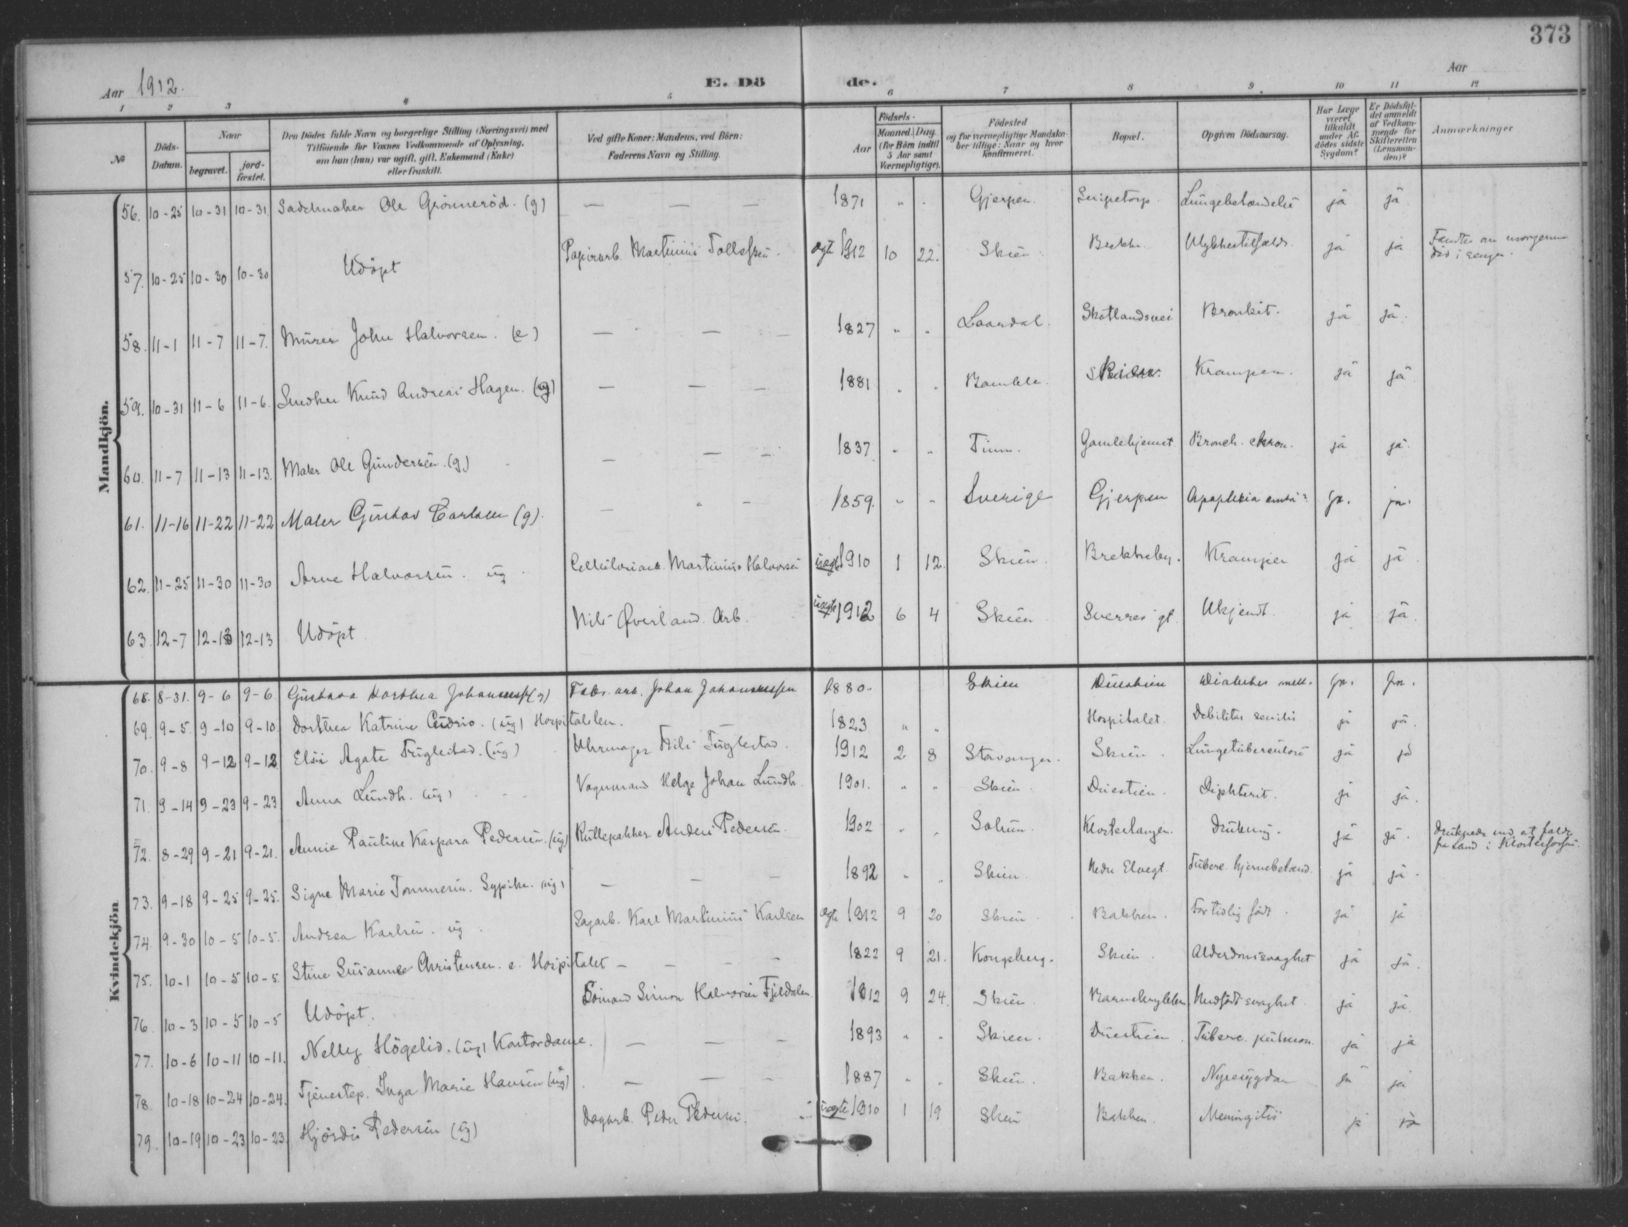 373
Aar 1912. E. Dö de. Aar
1 2 3 4 5 6 7 8 9 10 11 12
№ Döds-Datum. Naar begravet. jord-fæstet. Den Dödes fulde Navn og borgerlige Stilling (Næringsvei) med Tilföiende for Voxnes Vedkommende af Oplysning, om han (hun) var ugift, gift, Enkemand (Enke) eller fraskilt. Ved gifte Koner: Mandens, ved Börn: Faderens Navn og Stilling. Födsels- Aar Maaned. Dag. (for Börn indtil 5 Aar samt Værnepligtige). Födested og for værnepligtige Mandskaber tillige: Naar og hvor konfirmeret. Bopæl. Opgiven Dödsaarsag. Har Læge været tilkaldt under Afdödes sidste Sygdom? Er Dödsfaldet anmeldt af Vedkommende for Skifteretten (Lensmanden)? Anmærkninger
Mandkjön.
56. 10-25 10-31 10-31 Sadelmaker Ole Grönneröd. (g) — — — 1871 " . Gjerpen. Lungebetændelse ja ja
57. 10-25 10-30 10-30 Udöpt Papirarb. Martinius Tollefsen. ægt 1912 10 22. Skien. Brekke. Ulykkestilfælde ja ja Fandtes om morgenen död i sengen.
58. 11-1 11-7 11-7. Murer John Halvorsen. (e) — — — 1827 " " Laardal. Skotlandsvei Bronkit. ja ja.
59. 10-31 11-6 11-6. Snedker Knud Andreas Hagen. (ug) — — — 1881 . . Bamble. Skien. Krampen. ja ja
60. 11-7 11-13 11-13. Maler Ole Gundersen. (g) — — — 1837 " " Tinn. Gamlehjemmet Bronch. chron. ja ja.
61. 11-16 11-22 11-22 Maler Gustav Carlsen (g). — " — 1859. " " Sverige Gjerpen Apoplexia ja. ja.
62. 11-25 11-30 11-30 Arne Halvorsen. ug. Cellulosearb. Martinius Halvorsen uægte 1910 1 12. Skien. Brekkeby. Kramper ja ja
63. 12-7 12-13 12-13 Udöpt. Nils Øverland. Arb. uægte 1912 6 4 Skien Sverres gt. Ukjendt. ja ja.
Kvindekjön
68. 8-31. 9-6 9-6. Gustava Dorthea Johannessen (g) Fabr. arb. Johan Johannessen 1880. Skien Duestien Diabetes mell. ja. ja.
69. 9-5. 9-10 9-10. Dorthea Katrine (ug) Hospitalslem. 1823 " " Hospitalet. Debilitas senilis ja ja.
70. 9-8 9-12 9-12 Elsi Agate Fuglestad. (ug) Uhrmager Nils Fuglestad. 1912 2 8 Stavanger. Skien. Lungetuberculose ja ja
71. 9-14 9-23 9-23 Anna Lundh. (ug) Vognmand Helge Johan Lundh. 1901. " " Skien. Duestien. Diphterit. ja ja.
72. 8-29 9-21 9-21. Annie Pauline Kaspara Pedersen. (ug) Rullepakker Anders Pedersen. 1902 " " Solum. Klosterlangen. Drukning. ja ja. Druknede ved at falde fra Land i Klosterfossen.
73. 9-18 9-25 9-25. Signe Marie Tommesen. Sypike. (ug) — — — 1892 " " Skien. Nedre Elvegt. Tuberc. hjernebetænd. ja ja.
74. 9-30 10-5 10-5. Andrea Karlsen. ug. Sagarb. Karl Martinius Karlsen ægte 1912 9 20 Skien. Bakken. For tidlig född. ja ja
75. 10-1 10-5 10-5. Stine Susanne Christensen. e. Hospitalet — — — 1822 9 21. Kongsberg. Skien. Alderdomssvaghet ja ja.
76. 10-3 10-5 10-5 Udöpt. Sömand Simon Halvorsen Fjeldalen. 1912 9 24. Skien. Medfödt svaghet ja ja.
77. 10-6 10-11 10-11. Nelly Högelid. (ug) Kontordame. — — — 1893 " " Skien. Duestien. Tuberc. pulmon. ja ja
78. 10-18 10-24 10-24. Tjenestep. Inga Marie Hansen (ug) — — — 1887 " " Skien. Bakken. Nyresygdom ja ja
79. 10-19 10-23 10-23. Hjördis Pedersen (ug) Dagarb. Peder Pedersen. uægte 1910 1 19 Skien Bakken. Meningitis ja ja